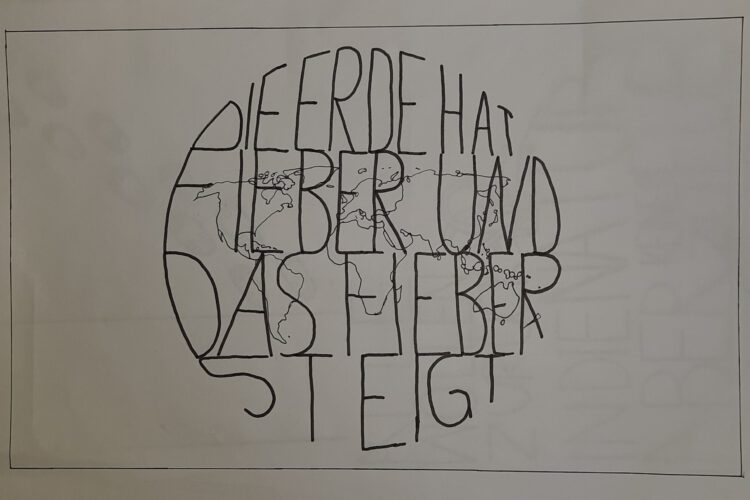 DIE ERDE HAT
FIEBER UND
DAS FIEBER
STEIGT